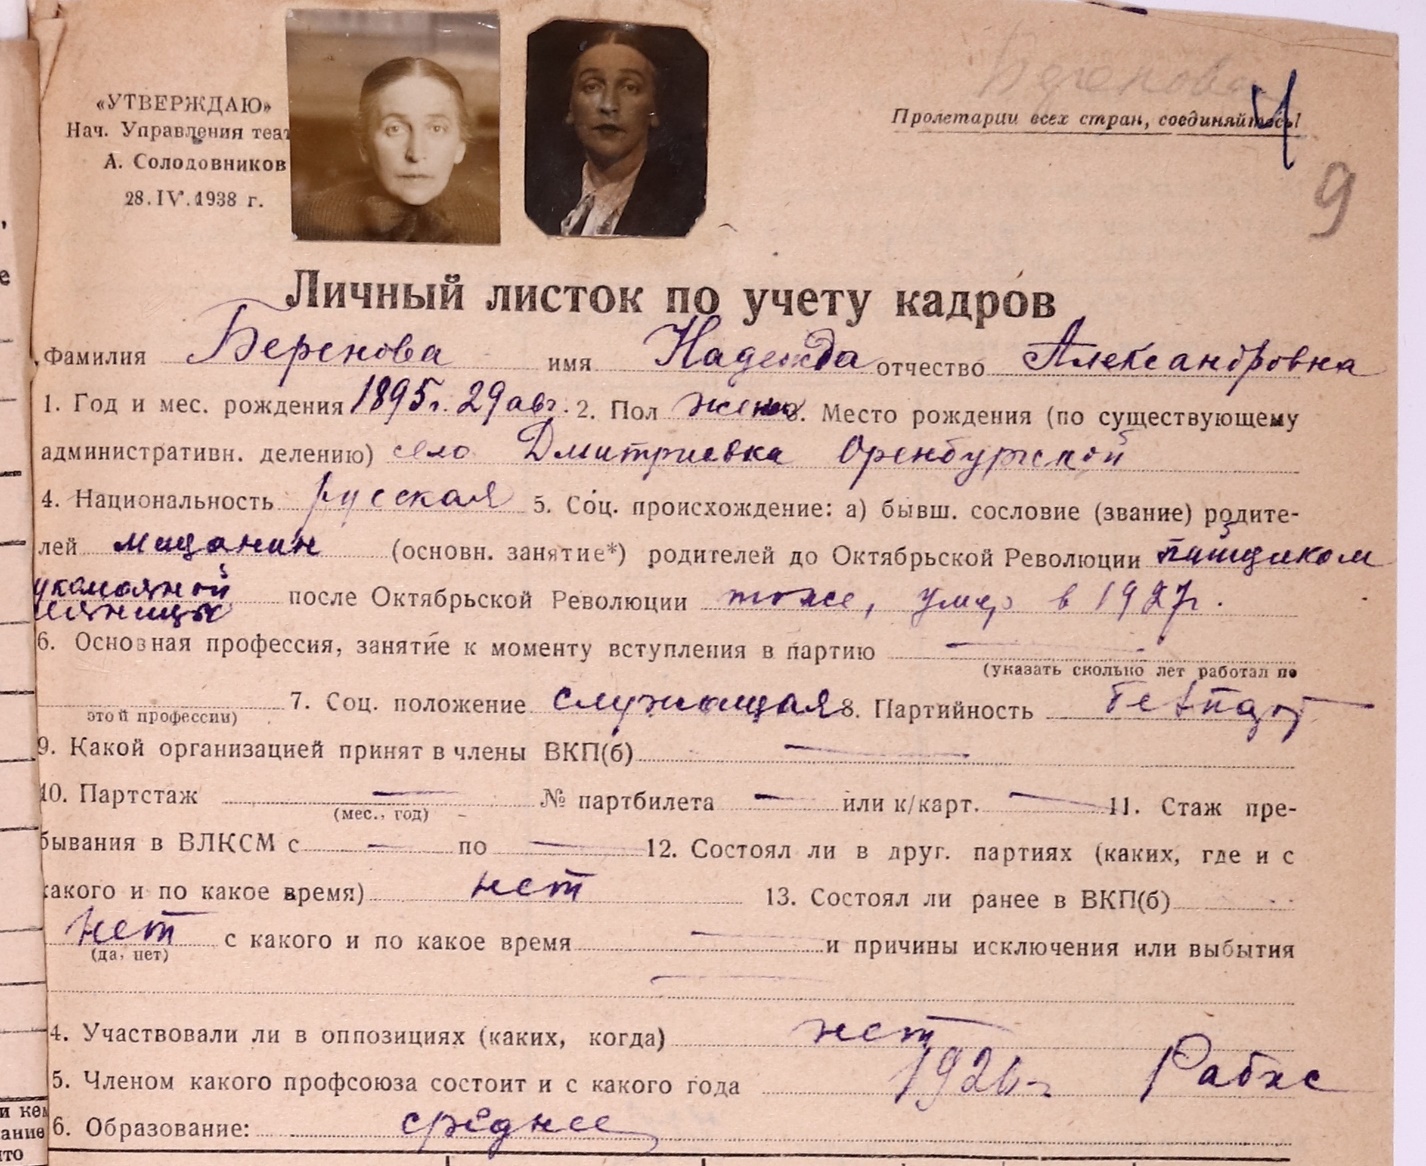 Беренова
Пролетарии всех стран, соединяйтесь!
«УТВЕРЖДАЮ»
Нач. Управления теат
А. Солодовников
28.IV.1938 г.
9
Личный листок по учету кадров
Фамилия Беренова имя Надежда отчество Александровна
1. Год и мес. рождения 1895г. 29 авг. 2. Пол жен 3. Место рождения (по существующему
административн. делению) село Дмитриевка Оренбургской
4. Национальность русская 5. Соц. происхождение: а) бывш. сословие (звание) родите-
лей мещанин (основн. занятие*) родителей до Октябрьской Революции
после Октябрьской Революции тоже, умер в 1927г.
6. Основная профессия, занятие к моменту вступления в партию —
(указать сколько лет работал по
этой профессии) 7. Соц. положение служащая 8. Партийность
9. Какой организацией принят в члены ВКП(б) —
10. Партстаж — № партбилета — или к/карт. — 11. Стаж пре-
(мес., год)
бывания в ВЛКСМ с — по — 12. Состоял ли в друг. партиях (каких, где и с
какого и по какое время) нет 13. Состоял ли ранее в ВКП(б)
нет с какого и по какое время — и причины исключения или выбытия
(да, нет)
—
4. Участвовали ли в оппозициях (каких, когда) нет
5. Членом какого профсоюза состоит и с какого года 1926г. Рабис
6. Образование: среднее